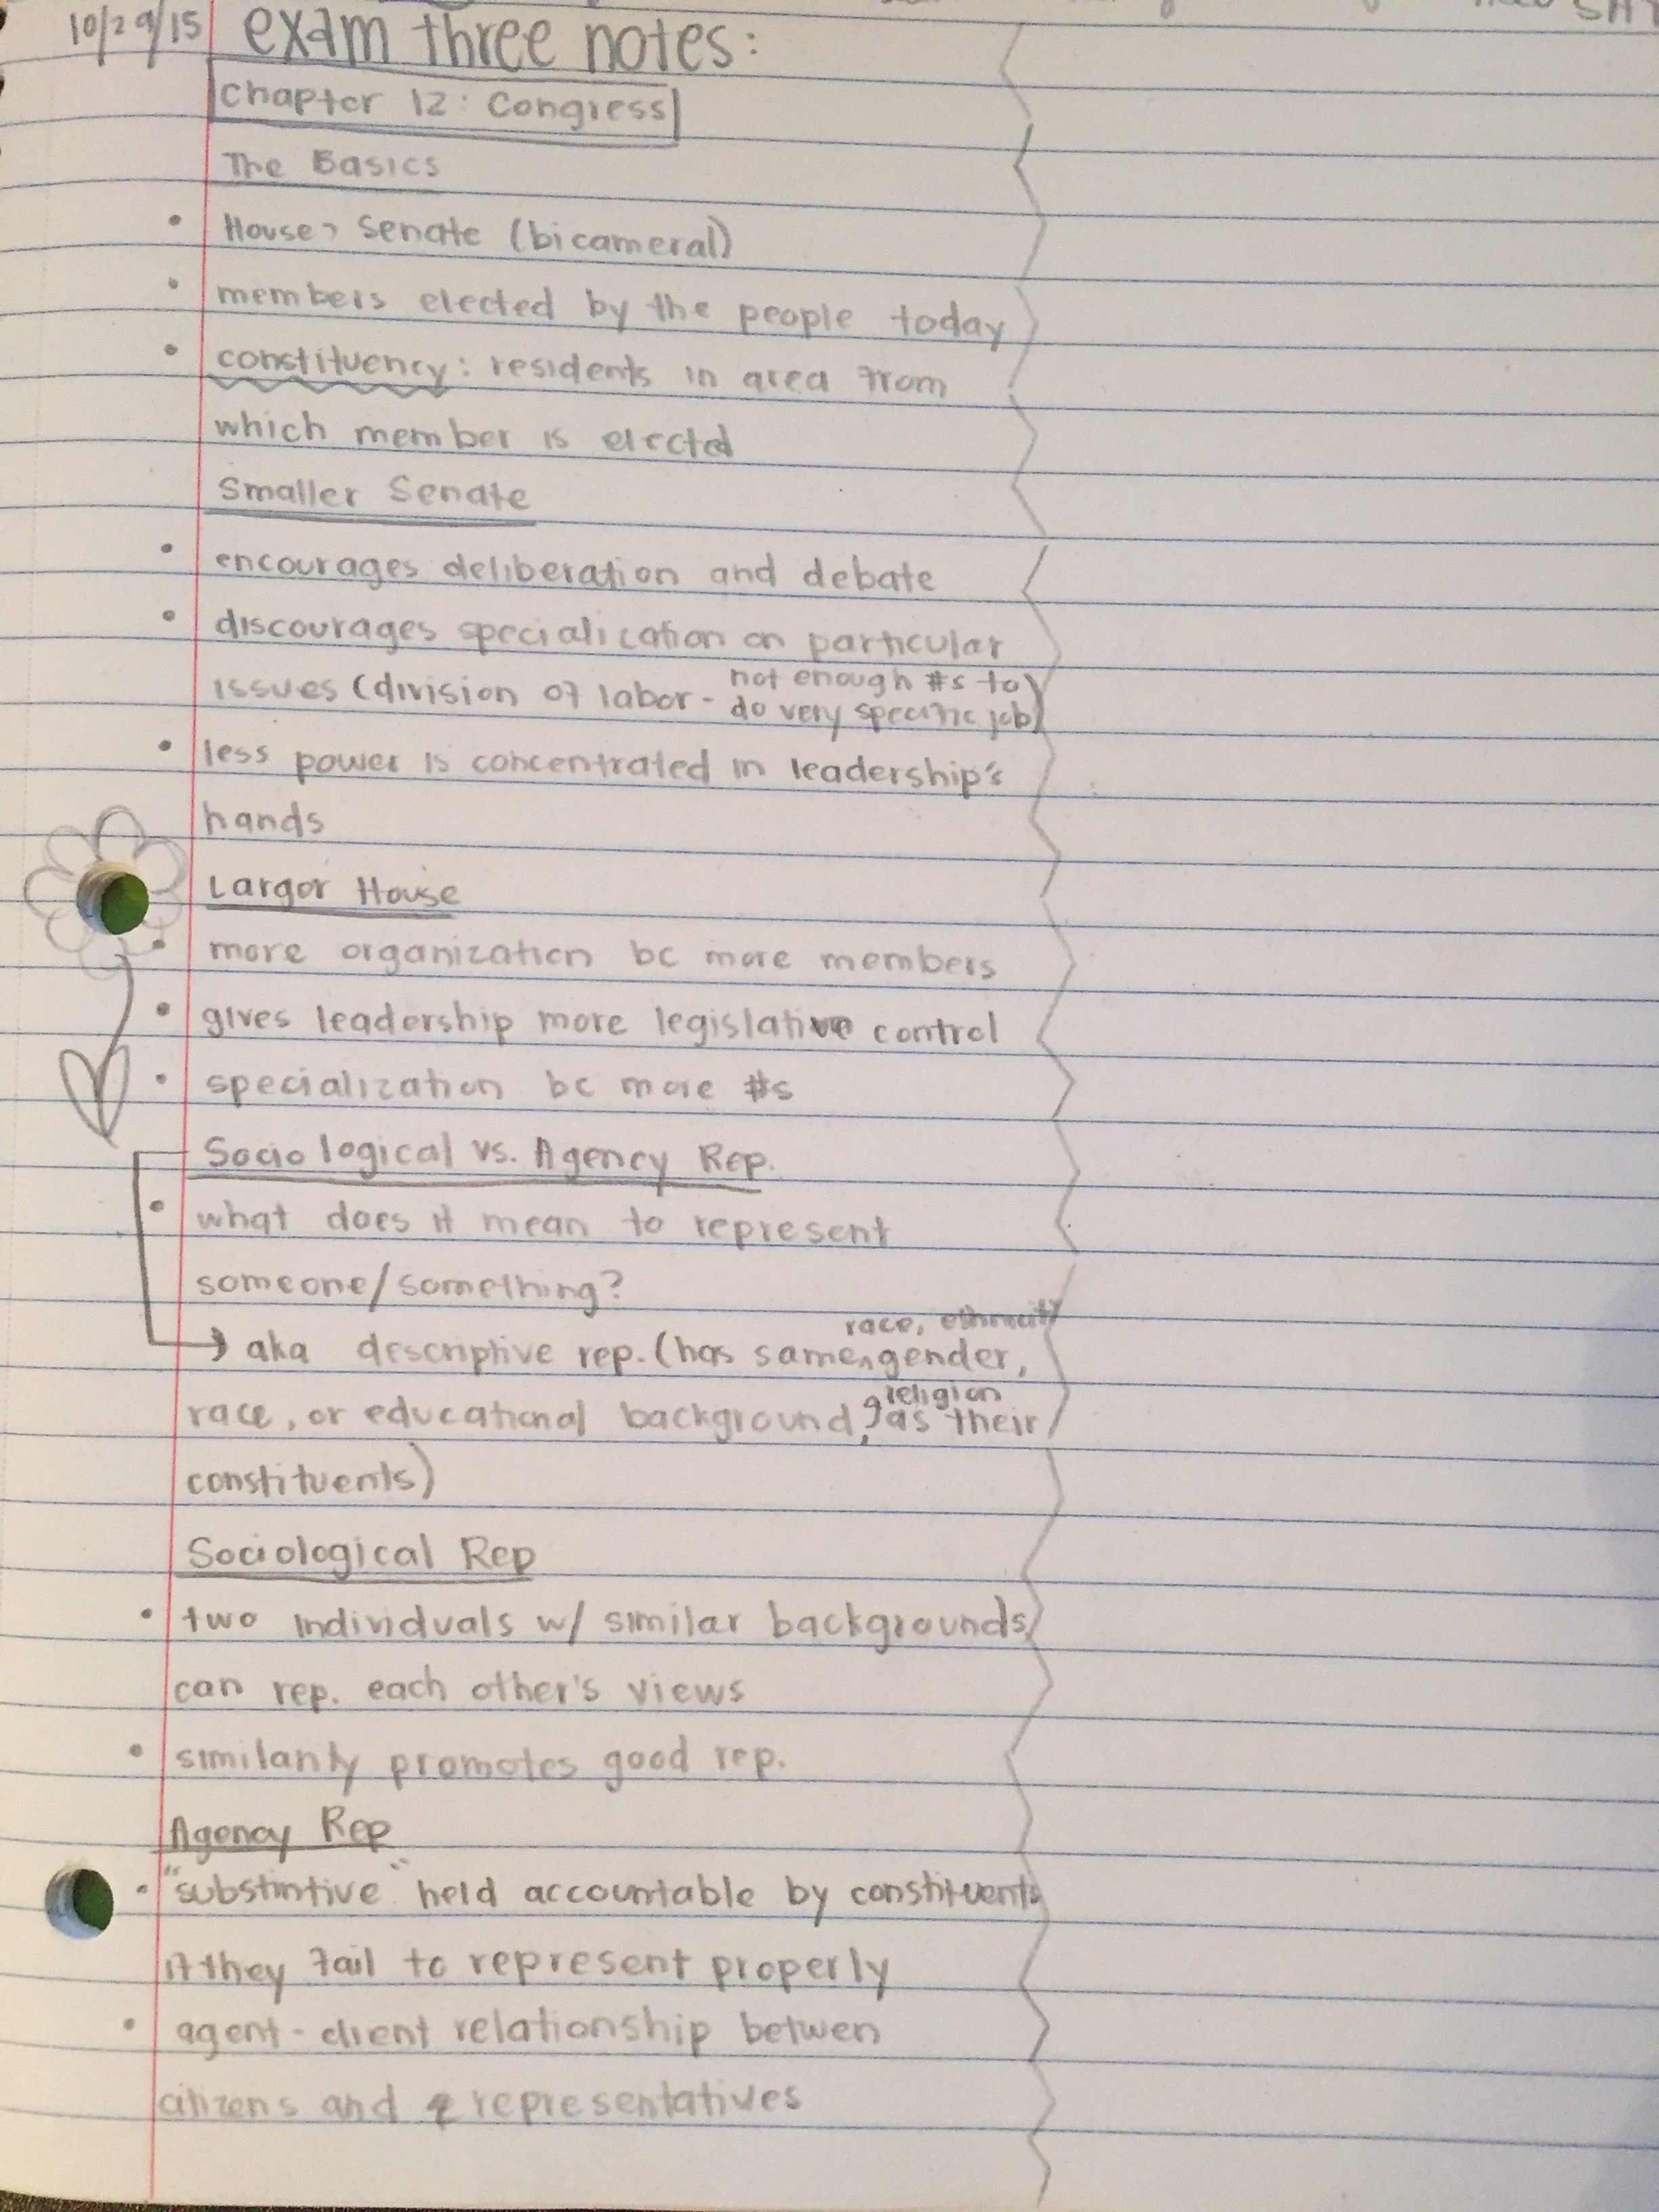 10/29/15 exam three notes:
Chapter 12: Congress
The Basics
• House, Senate (bicameral)
• members elected by the people today
• constituency: residents in area from
which member is elected
Smaller Senate
• encourages deliberation and debate
• discourages specialication on particular
issues (division of labor - not enough #s to
do very specific job)
• less power is concentrated in leadership's
hands
Larger House
• more organization bc more members
• gives leadership more legislative control
• specialization bc more #s
Sociological vs. Agency Rep.
• what does it mean to represent
someone/something?
race, ethnicity
→ aka descriptive rep. (has same, gender,
religion
race, or educational background, as their
constituents)
Sociological Rep
• two individuals w/ similar backgrounds
can rep. each other's views
• similarity promotes good rep.
Agency Rep
• "substintive" held accountable by constituents
if they fail to represent properly
• agent-client relationship betwen
citizens and representatives